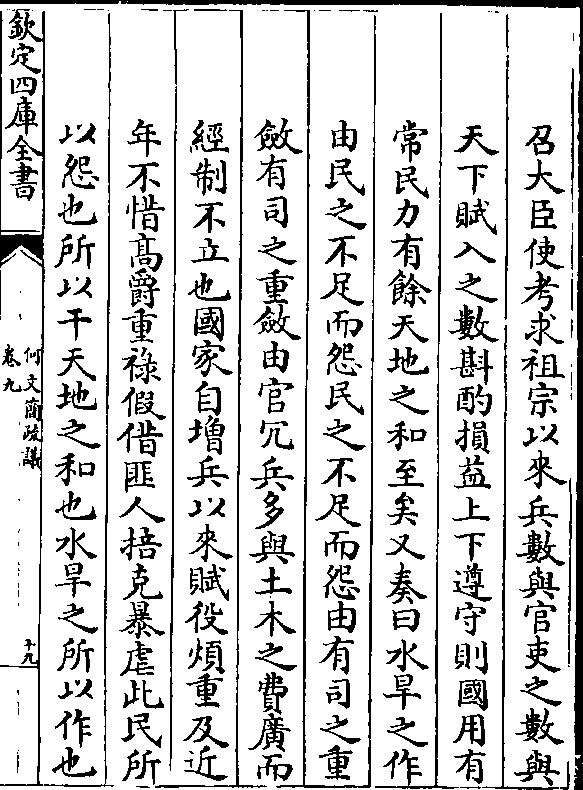 召大臣使考求祖宗以來兵數與官吏之數與
天下賦入之數斟酌損益上下遵守則國用有
常民力有餘天地之和至矣又奏曰水旱之作
由民之不足而怨民之不足而怨由有司之重
斂有司之重斂由官冗兵多與土木之費廣而
經制不立也國家自增兵以來賦役煩重及近
年不惜高爵重祿假借匪人掊克暴虐此民所
以怨也所以干天地之和也水旱之所以作也
欽定四庫全書
何文簡疏議
卷九
十九